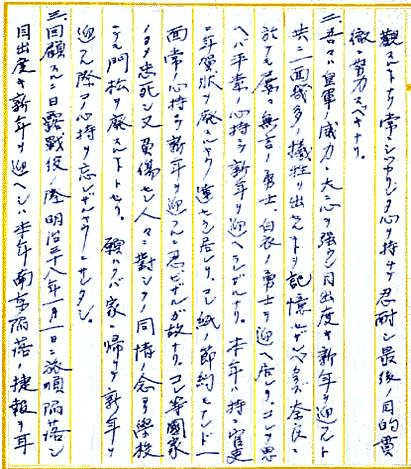 観スルトナク常ニシツカリシタ心ヲ持シテ忍耐シ最後ノ目的貫
徹ニ努力スベキナリ。
二、吾々ハ皇軍ノ威力ニ大ニ心ヲ強クシ目出度キ新年ヲ迎フルト
共ニ一面幾多ノ犠牲ヲ出セルヲ記憶セザルベカラズ。奈良ニ
於テモ屡々無言ノ勇士、白衣ノ勇士ヲ迎ヘ居レリ。コレヲ思
ヘバ平素ノ心持ヲ新年ヲ迎ヘラレザルナリ。本年ハ特ニ官吏
ニ年賀状ヲ廃スルヤウ達セラレ居レリ。コレ紙ノ節約モナレド一
面常ノ心持ヲ新年ヲ迎フルニ忍ビザルガ故ナリ。コレ等国家
ノタメ忠死シ又負傷セシ人々ニ対シテノ同情ノ念ヨリ学校
ニテモ門松ヲ廃スルトセリ。願クバ家ニ帰リテ新年ヲ
迎フル際コノ心持ヲ忘レザルヤウニサレタシ。
三、回顧スルニ日露戦役ノ際明治三十八年一月一日ニ旅順陥落シ
目出度キ新年ヲ迎ヘシハ本年南京陥落ノ捷報ヲ耳